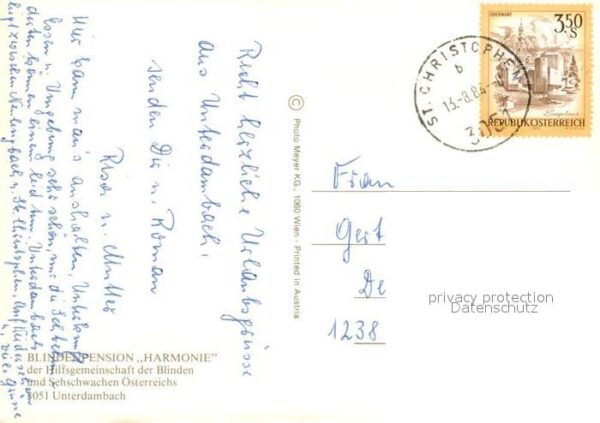 Recht herzliche Urlaubsgrüsse
aus Unterdambach,
senden Dir u. Roman
Risa u. Mutter
Hier kann man's aushalten, Unterkunft
Essen u. Umgebung sehr schön, nur die
können einem leid tun. Unterdambach
liegt zwischen Neulengbach u. St. Christophen. Auf Wiedersehen
u. viele Grüsse
BLINDENPENSION „HARMONIE"
der Hilfsgemeinschaft der Blinden
und Sehschwachen Österreichs
3051 Unterdambach
© Photo Meyer KG., 1060 Wien - Printed in Austria
OBERWART
3.50
S
REPUBLIK ÖSTERREICH
ST. CHRISTOPHEN
b
13.-8.84
3051
Frau
Gert
De
1238
privacy protection
Datenschutz